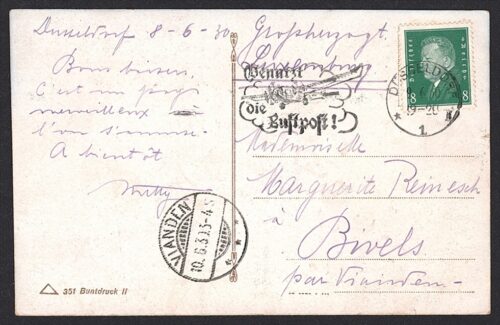 Dusseldorf 8-6-30
Bons baisers.
C'est un pays
merveilleux où
l'on s'amuse.
A bientôt
Willy
Großherzogt.
Luxemburg
Benutzt
die
Luftpost!
Deutsches Reich
8 8
DÜSSELDORF
19-20
* 1
Mademoiselle
Marguerite Reinesch
à
Bivels
par Vianden
VIANDEN
10.6.30.3-4S
351 Buntdruck II